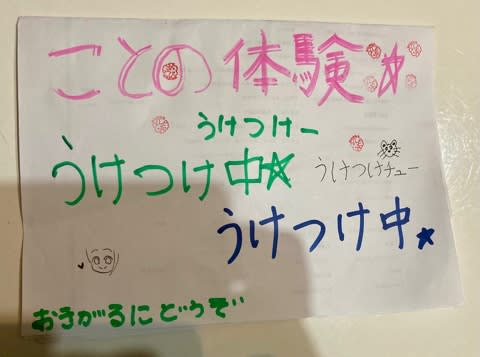 ことの体験☆
うけつけー
うけつけ中☆
うけつけチュー
うけつけ中☆
おきがるにどうぞ